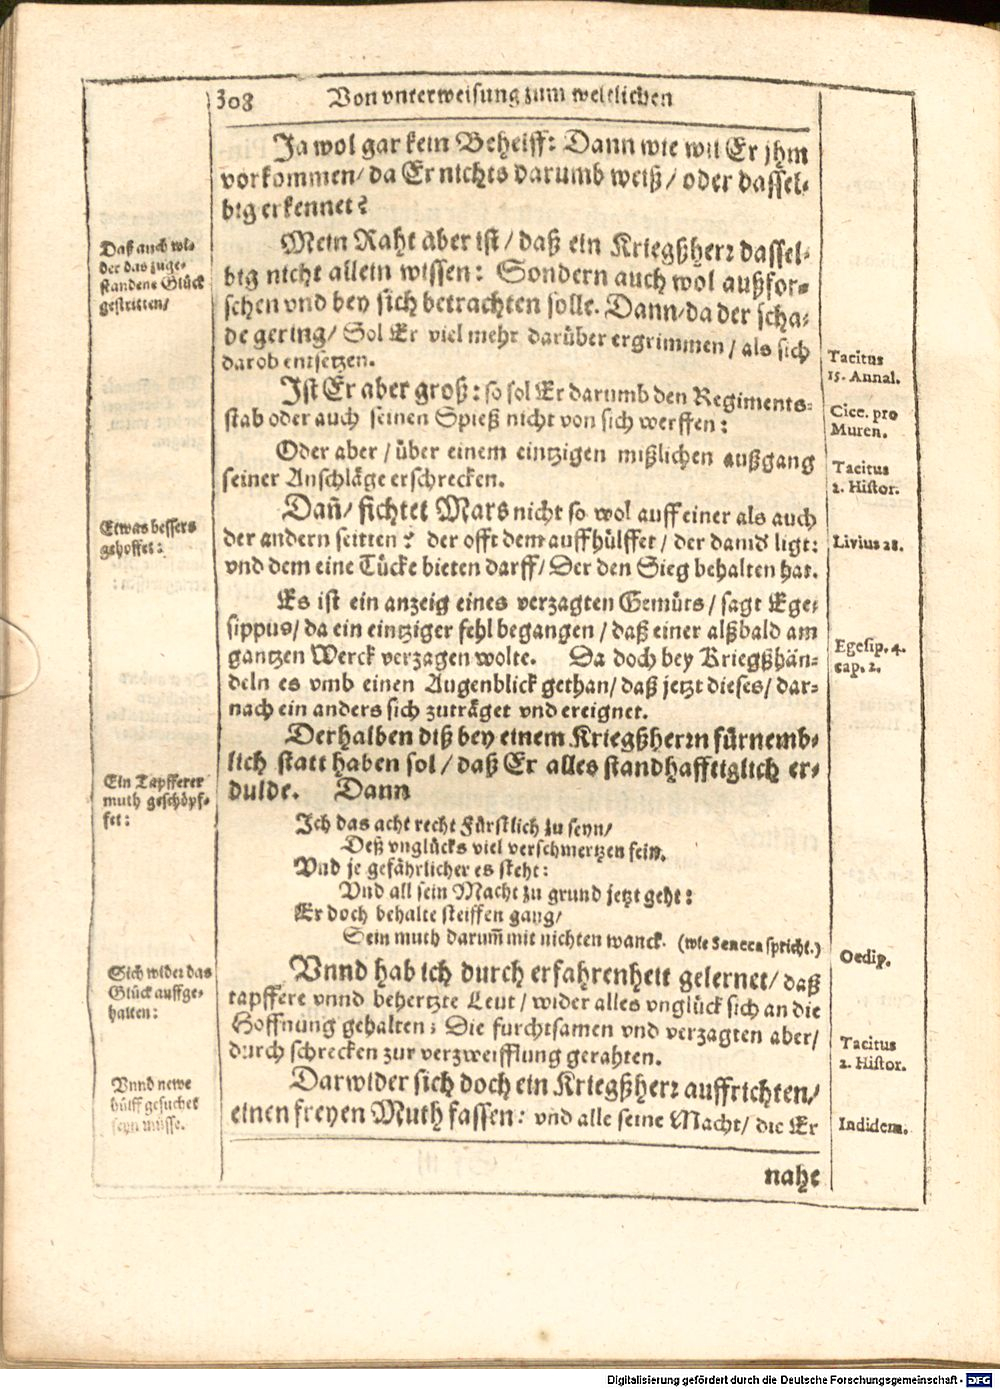 308 Von vnterweisung zum weltlichen
Ja wol gar kein Behelff: Dann wie wil Er jhm
vorkommen/ da Er nichts darumb weiß/ oder dassel-
big erkennet?
Daß auch wi-
der das zuge-
standene Glück
gestritten/
Mein Raht aber ist/ daß ein Kriegßherr dassel-
big nicht allein wissen: Sondern auch wol außfor-
schen vnd bey sich betrachten solle. Dann/ da der scha-
de gering/ Sol Er viel mehr darüber ergrimmen/ als sich
darob entsetzen.
Tacitus
15. Annal.
Ist Er aber groß: so sol Er darumb den Regiments-
stab oder auch seinen Spieß nicht von sich werffen:
Cice. pro
Muren.
Oder aber/ über einem eintzigen mißlichen außgang
seiner Anschläge erschrecken.
Tacitus
2. Histor.
Etwas bessers
gehoffet:
Dañ/ fichtet Mars nicht so wol auff einer als auch
der andern seitten? der offt dem auffhülffet/ der damid ligt:
vnd dem eine Tücke bieten darff/ Der den Sieg behalten hat.
Livius 28.
Es ist ein anzeig eines verzagten Gemüts/ sagt Ege-
sippus/ da ein eintziger fehl begangen/ daß einer alßbald am
gantzen Werck verzagen wolte. Da doch bey Kriegßhän-
deln es vmb einen Augenblick gethan/ daß jetzt dieses/ dar-
nach ein anders sich zuträget vnd ereignet.
Egesip. 4.
cap. 2.
Derhalben diß bey einem Kriegßherrn fürnemb-
lich statt haben sol/ daß Er alles standhafftiglich er-
dulde. Dann
Ein Tapfferer
muth geschöpf-
fet:
Ich das acht recht Fürstlich zu seyn/
Deß vnglücks viel verschmertzen fein.
Vnd je gefährlicher es steht:
Vnd all sein Macht zu grund jetzt geht:
Er doch behalte steiffen gang/
Sein muth darum̃ mit nichten wanck. (wie Seneca spricht.)
Oedip.
Sich wider das
Glück auffge-
halten:
Vnnd hab ich durch erfahrenheit gelernet/ daß
tapffere vnnd behertzte Leut/ wider alles vnglück sich an die
Hoffnung gehalten; Die furchtsamen vnd verzagten aber/
durch schrecken zur verzweifflung gerahten.
Tacitus
2. Histor.
Vnnd newe
hülff gesuchet
seyn müsse.
Darwider sich doch ein Kriegßherr auffrichten/
einen freyen Muth fassen: vnd alle seine Macht/ die Er
Indidem.
nahe
Digitalisierung gefördert durch die Deutsche Forschungsgemeinschaft - DFG